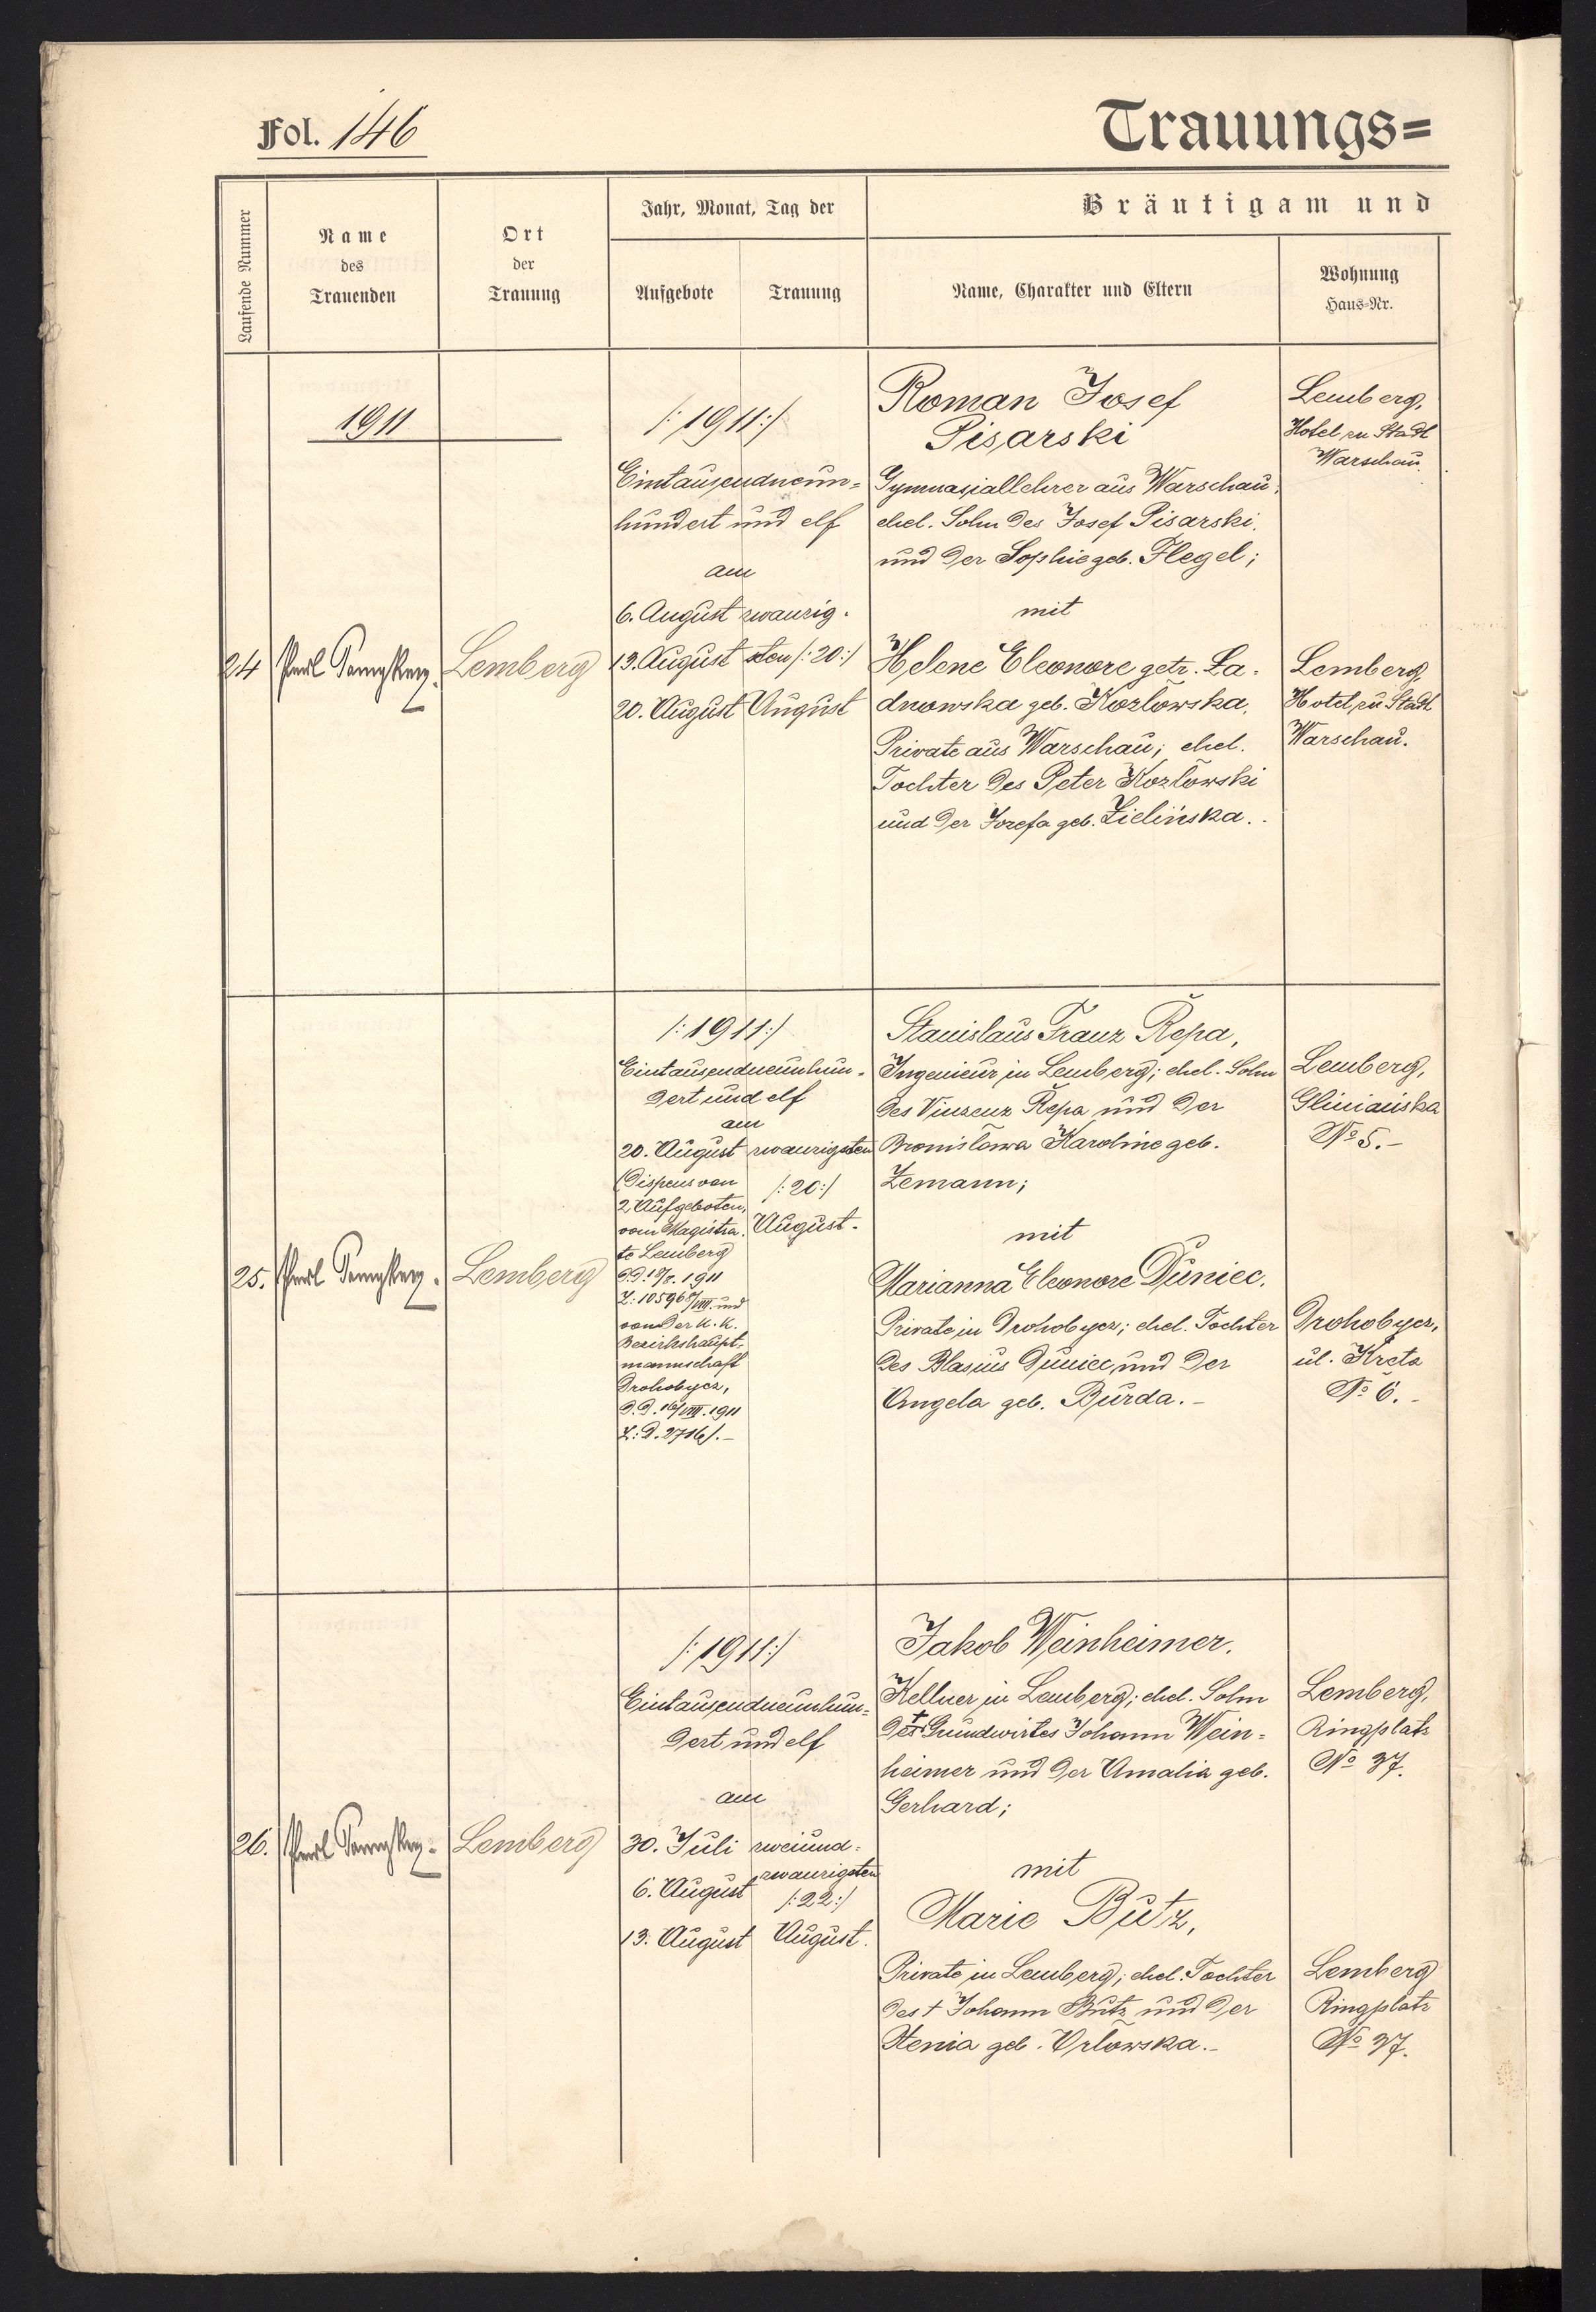 Fol. 146
Trauungs=
Laufende Nummer
Name
des
Trauenden
Ort
der
Trauung
Jahr, Monat, Tag der
Aufgebote
Trauung
Bräutigam und
Name, Charakter und Eltern
Wohnung
Haus-Nr.
1911
24
Lemberg
/: 1911 :/
Eintausendneun-
hundert und elf
am
6. August zwanzig-
13. August sten /: 20 :/
20. August August
Roman Josef
Pisarski
Gymnasiallehrer aus Warschau,
ehel. Sohn des Josef Pisarski
und der Sophie geb. Flegel;
mit
Helene Eleonore getr. La-
dnowska geb. Kozłowska,
Private aus Warschau; ehel.
Tochter des Peter Kozłowski
und der Jozefa geb. Zielińska.
Lemberg,
Hotel zu Stadt
Warschau.
Lemberg,
Hotel zu Stadt
Warschau.
25.
Lemberg
/: 1911 :/
Eintausendneunhun-
dert und elf
am
20. August
(Dispens von
2 Aufgeboten,
vom Magistra-
te Lemberg
d.d. 18/8. 1911
Z: 105968/VIII. und
von der k. k.
Bezirkshaupt-
mannschaft
Drohobycz,
d.d. 16/VIII. 1911
Z: D. 2716). –
zwanzigsten
/: 20 :/
August.
Stanislaus Franz Řepa,
Ingenieur in Lemberg; ehel. Sohn
des Vinzenz Řepa und der
Bronisława Karoline geb.
Zemann;
mit
Marianna Eleonore Duniec.
Private in Drohobycz; ehel. Tochter
des Blasius Duniec und der
Angela geb. Burda. –
Lemberg,
Gliniańska
No 5. –
Drohobycz,
ul. Kręta
No 6. –
26.
Lemberg
/: 1911 :/
Eintausendneunhun-
dert und elf
am
30. Juli
6. August
13. August
zweiund-
zwanzigsten
/: 22 :/
August.
Jakob Weinheimer.
Kellner in Lemberg; ehel. Sohn
des † Grundwirtes Johann Wein-
heimer und der Amalia geb.
Gerhard;
mit
Marie Butz,
Private in Lemberg; ehel. Tochter
des † Johann Butz und der
Xenia geb. Orłowska. –
Lemberg,
Ringplatz
No 37.
Lemberg
Ringplatz
No 37.